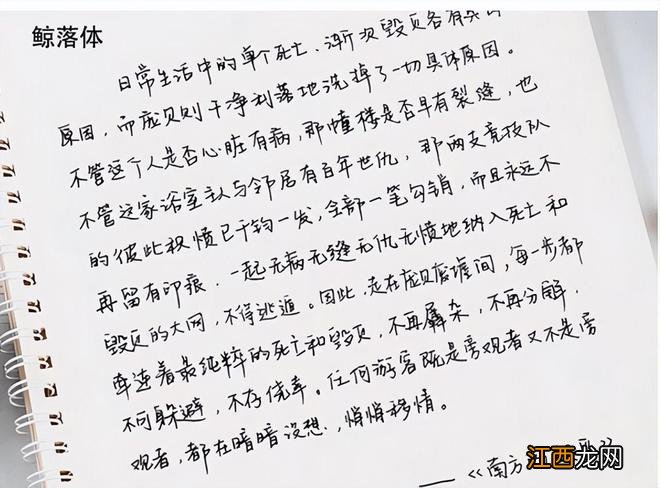 鲸落体
日常生活中的单个死亡、渐次毁灭各有具
原因,而庞贝则干净利落地洗掉了一切具体原因。
不管这个人是否心脏有病,那幢楼是否早有裂缝,也
不管这家浴室主人与邻居有百年世仇,那两支竞技队
的彼此积愤已千钧一发,全部一笔勾销,而且永远不
再留有印痕.一起无病无缝无仇无愤地纳入死亡和
毁灭的大网,不得逃遁。因此,走在庞贝废墟间,每一步都
牵连着最纯粹的死亡和毁灭,不再羼杂,不再分解.
不可躲避,不存侥幸。任何游客既是旁观者又不是旁
观者,都在暗暗设想.,悄悄移情。
——《南方
江西龙网